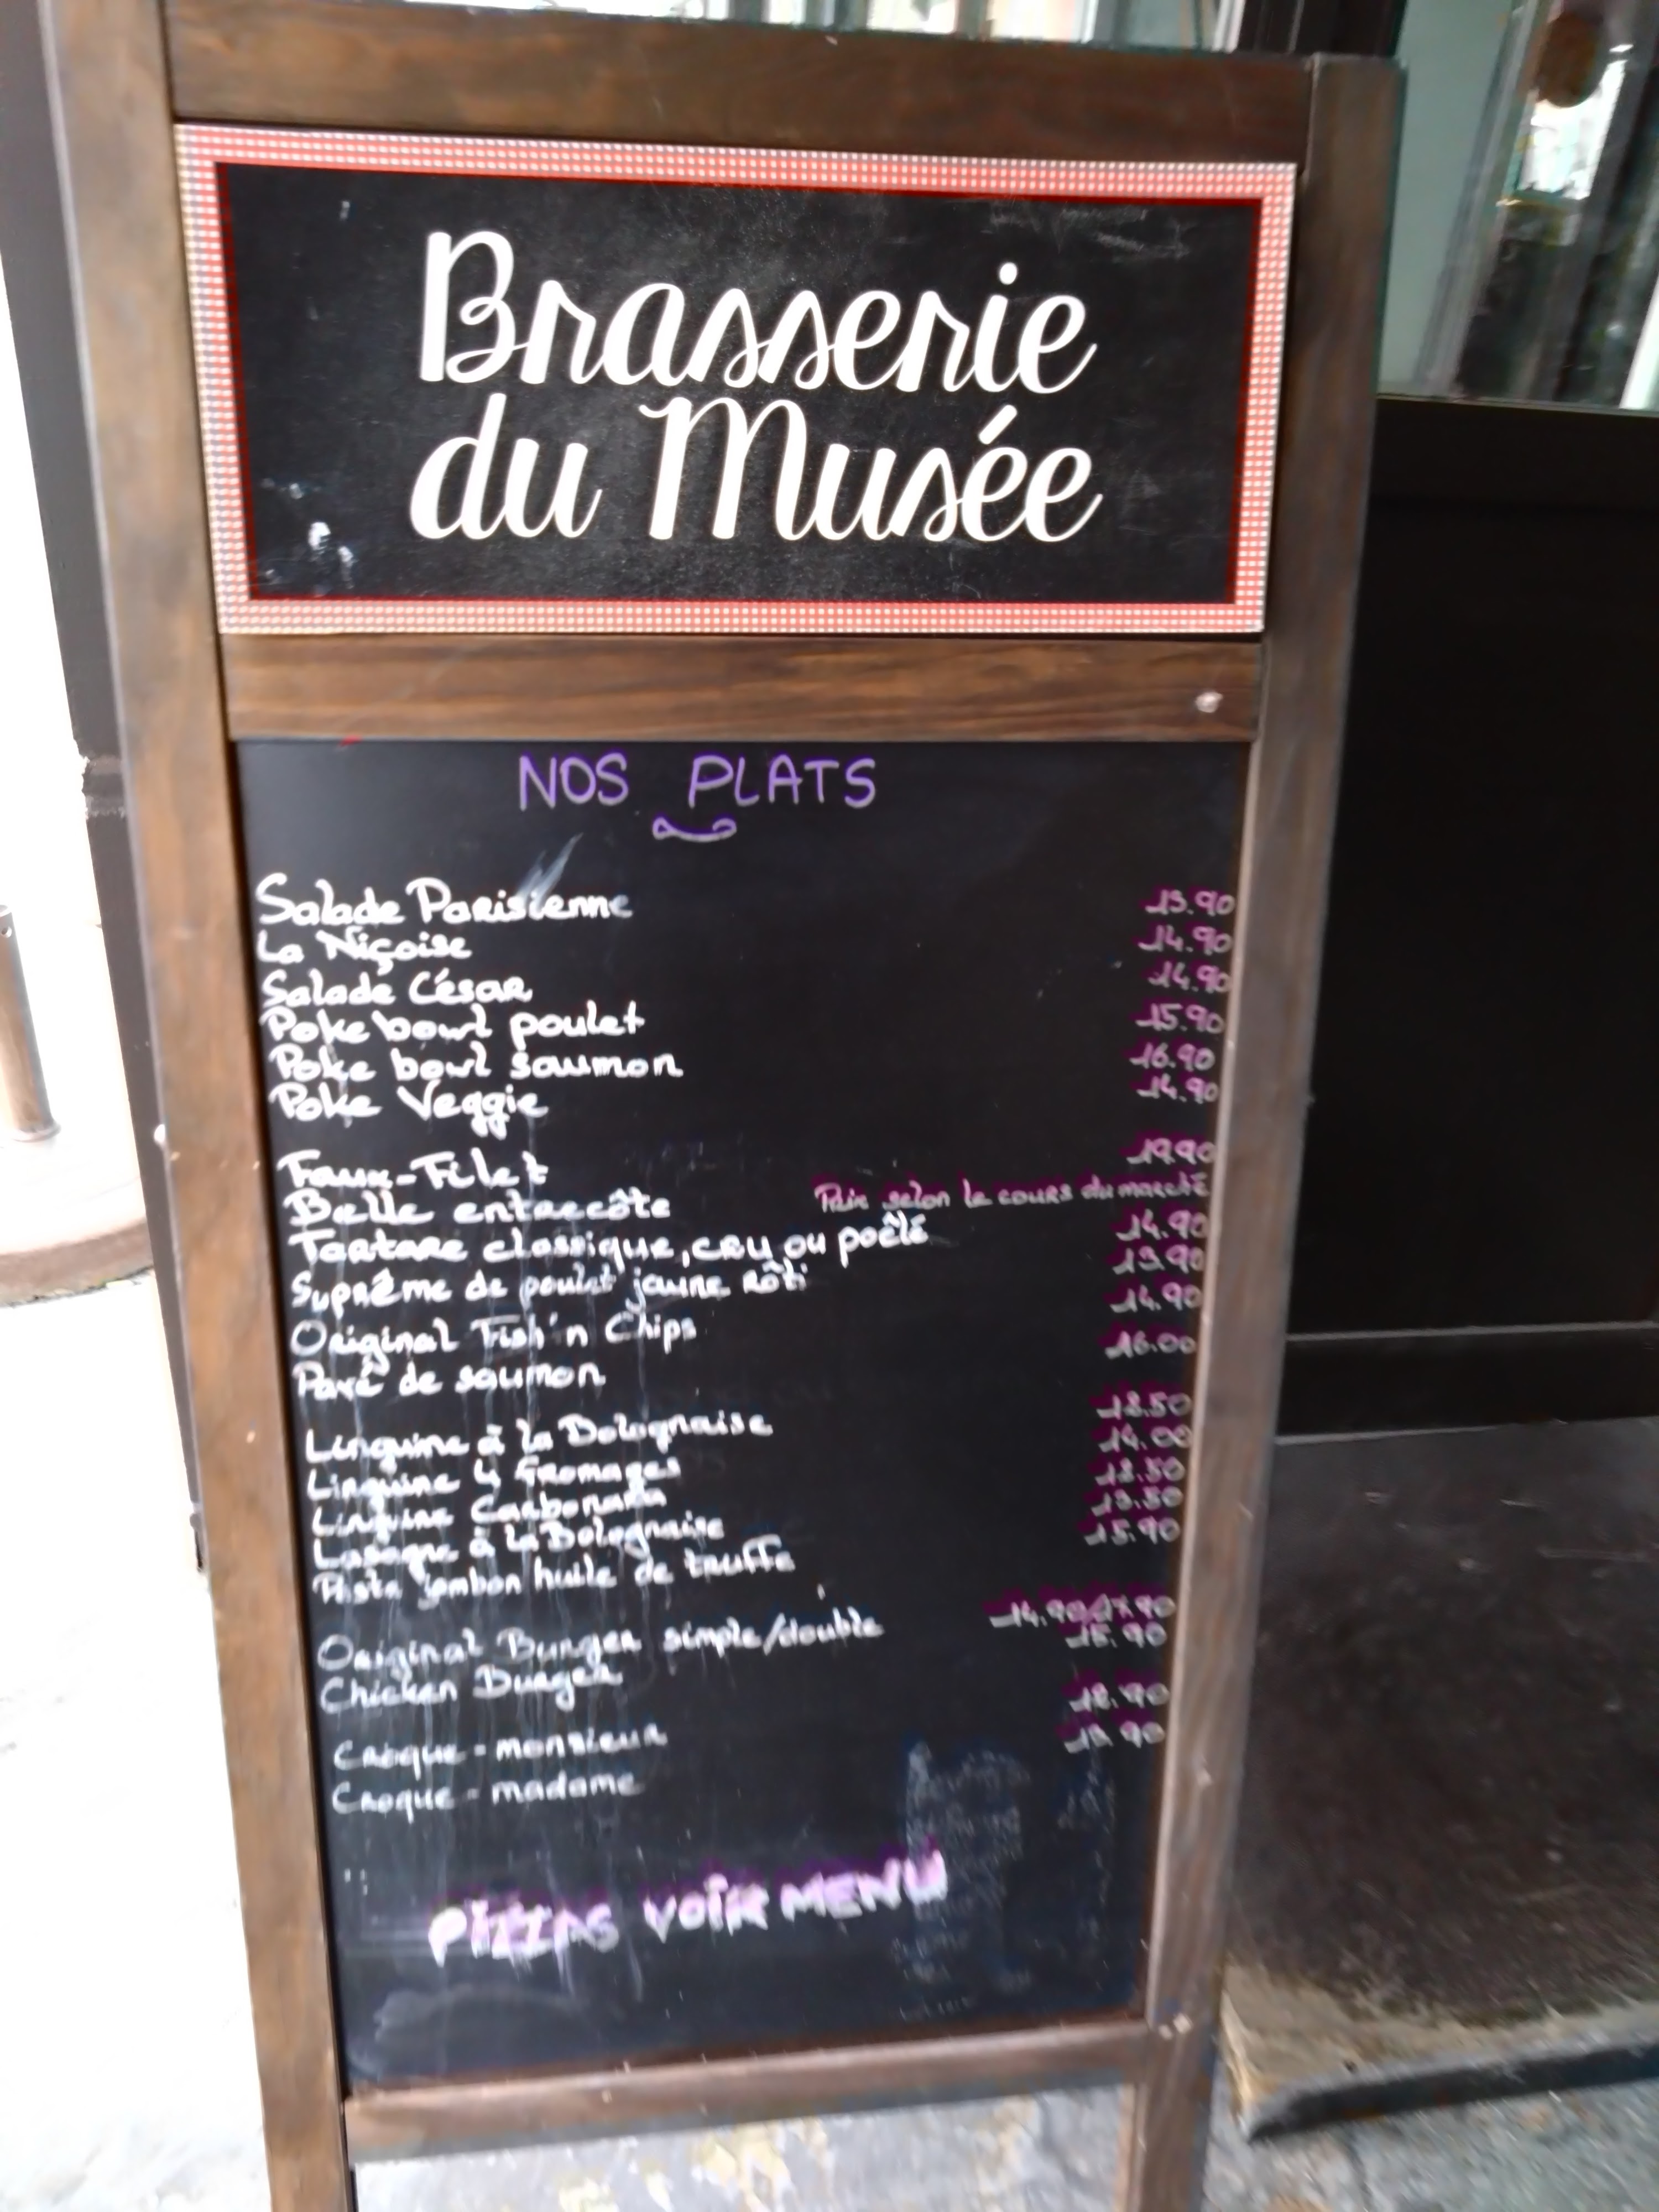 Brasserie
du Musée
NOS PLATS
Salade Parisienne 13.90
La Niçoise 14.90
Salade César 14.90
Poke bowl poulet 15.90
Poke bowl saumon 16.90
Poke Veggie 14.90
Faux-Filet 19.90
Belle entrecôte Prix selon le cours du marché
Tartare classique, cru ou poêlé 14.90
Suprême de poulet jaune rôti 13.90
Original Fish'n Chips 14.90
Pavé de saumon 16.00
Linguine à la Bolognaise
Linguine 4 Fromages 14.00
Linguine Carbonara
Lasagne à la Bolognaise
jambon huile de truffe 15.90
Original Burger simple/double
Chicken Burger
Croque-monsieur
Croque-madame
PIZZAS VOIR MENU